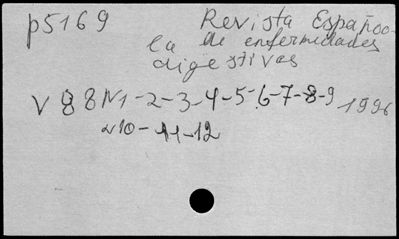 p5169 Revista Españo-
la de enfermedades
digestivas
V 88 N1-2-3-4-5-6-7-8-9 1996
N10-11-12